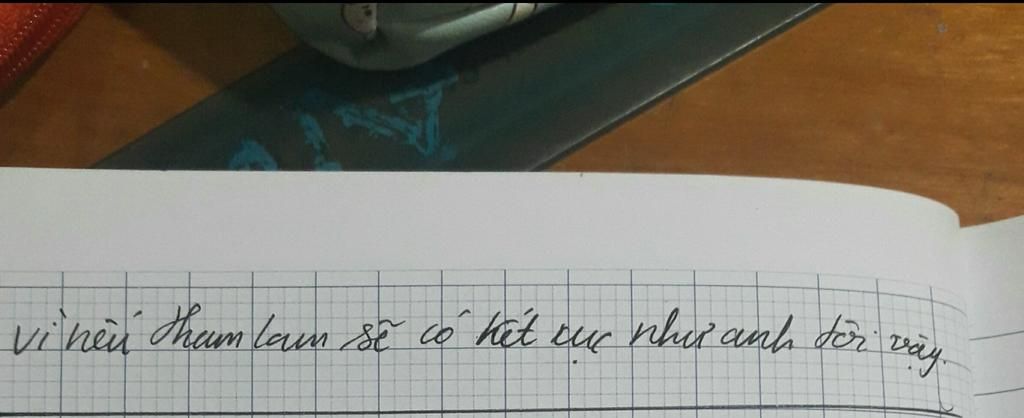 vì nếu tham lam sẽ có kết cục như anh đời vậy.